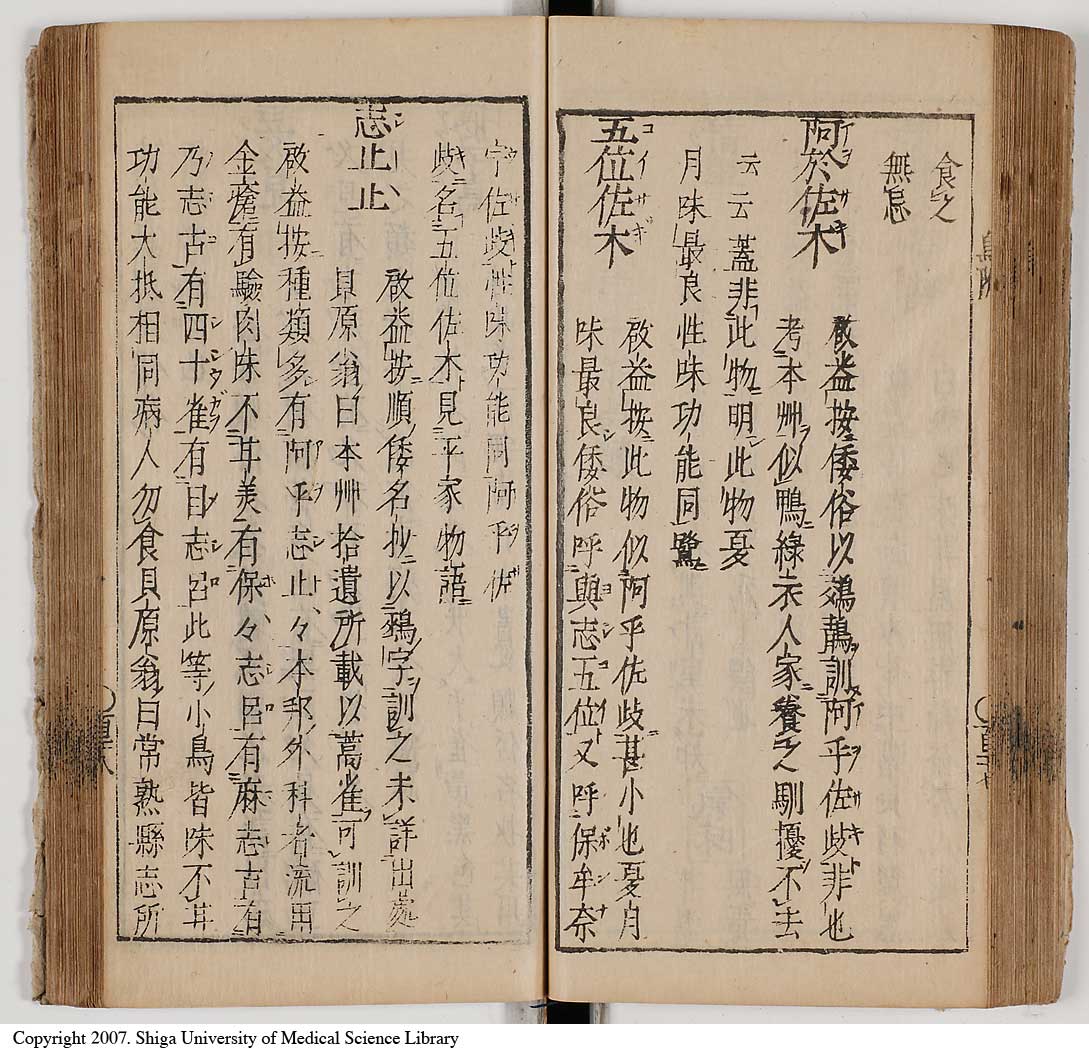 食之
無忌
阿於佐木
啟益按倭俗以鵁鶄訓阿乎佐岐非也
考本艸似鴨緑衣人家養之馴擾不去
云云蓋非此物明此物夏
月味最良性味功能同鷺
五位佐木
啟益按此物似阿乎佐岐甚小也夏月
味最良倭俗呼與志五位又呼保牟奈
宇佐岐性味功能同阿乎佐
岐名五位佐木見平家物語
志止止
啟益按順倭名抄以鵐字訓之未詳出處
貝原翁曰本艸拾遺所載以蒿雀可訓之
啟益按種類多有阿乎志止々本邦外科者流用
金瘡有驗肉味不甘美有保々志呂有麻志古有
乃志古有四十雀有目志呂此等小鳥皆味不甘
功能大抵相同病人勿食貝原翁曰常熟縣志所
Copyright 2007. Shiga University of Medical Science Library